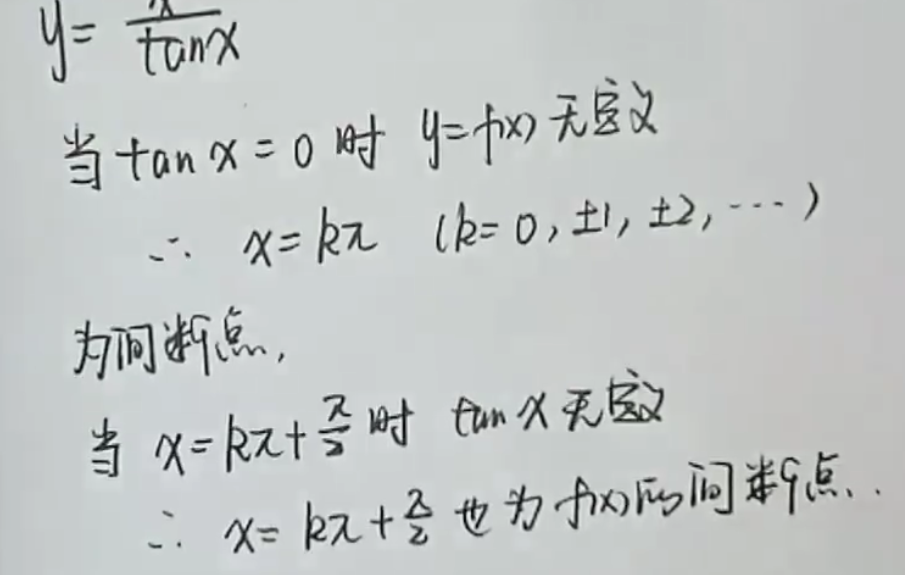 y = x/tanx
当 tan x = 0 时 y=f(x) 无定义
∴ x = kπ (k= 0, ±1, ±2, ···)
为间断点,
当 x = kπ + π/2 时 tan x 无定义
∴ x = kπ + π/2 也为 f(x) 的间断点..